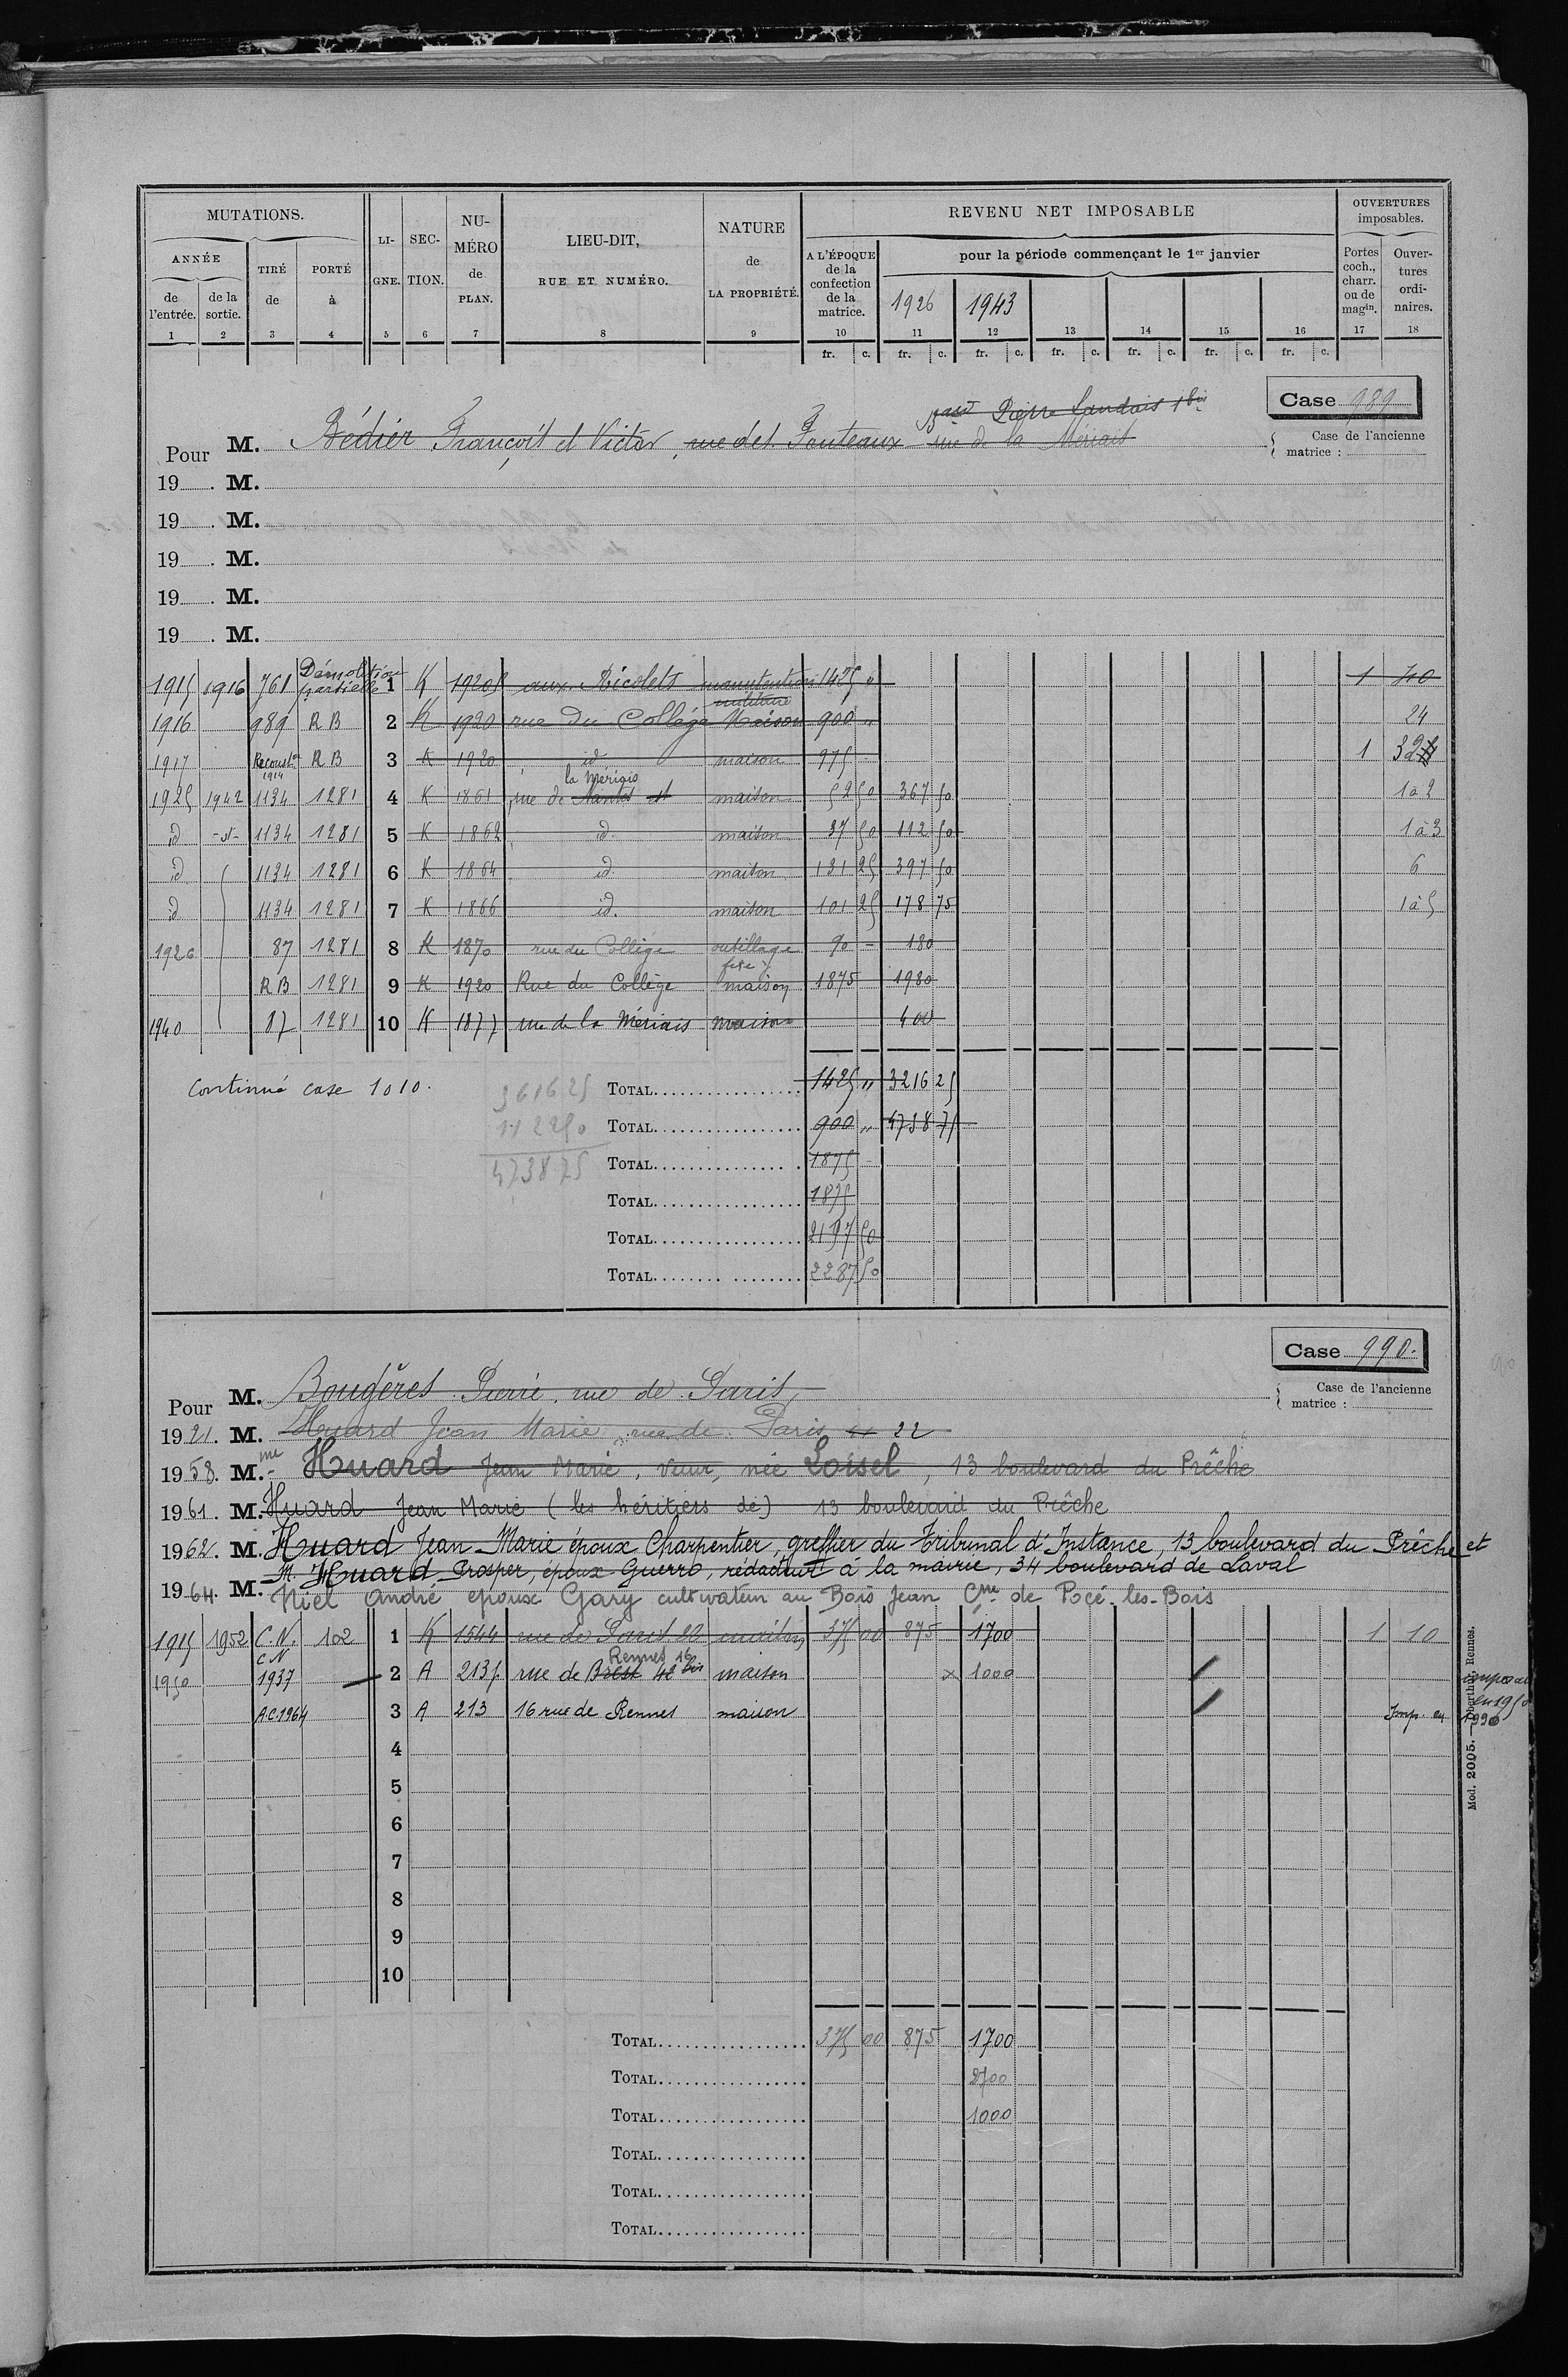 MUTATIONS. LI-GNE. SEC-TION. NU-MÉRO de PLAN. LIEU-DIT, RUE ET NUMÉRO. NATURE de LA PROPRIÉTÉ. REVENU NET IMPOSABLE OUVERTURES imposables.
ANNÉE TIRÉ de PORTÉ à A L'ÉPOQUE de la confection de la matrice. pour la période commençant le 1er janvier Portes coch., charr. ou de magin. Ouver-tures ordi-naires.
de l'entrée. de la sortie. 1926 1943
1 2 3 4 5 6 7 8 9 10 11 12 13 14 15 16 17 18
fr. c. fr. c. fr. c. fr. c. fr. c. fr. c. fr. c.
Case 989
Pierre Landais 1bis
Pour M. Bédier François et Victor, rue des rue de la Mériais
Case de l'ancienne matrice :
19 . M.
19 . M.
19 . M.
19 . M.
19 . M.
1915 1916 761 Démolition partielle 1 K 1920 aux Récolets manutention militaire 1425 " 1 40
1916 989 R B 2 K 1920 rue du Collège Maison 900 " 24
1917 Reconst. 1914 R B 3 K 1920 id maison 975 - 1
1925 1942 1134 1281 4 K 1861 rue de Nantes la Mériais maison 52 50 367 50 1 à 2
id -d- 1134 1281 5 K 1862 id. maison 37 50 112 50 1 à 3
id 1134 1281 6 K 1864 id. maison 131 25 397 50 6
id 1134 1281 7 K 1866 id. maison 101 25 178 75 1 à 5
1926 87 1281 8 K 1870 rue du Collège outillage fixe 90 - 180
R B 1281 9 K 1920 Rue du Collège maison 1875 1980
1940 87 1281 10 K 1877 rue de la Mériais maison 400
Continué case 1010.
361625 TOTAL 1425 " 3216 25
112250 TOTAL 900 " 4738 75
473875 TOTAL 1875 -
TOTAL 1875
TOTAL 2197 50
TOTAL 2287 50
Case 990.
Pour M. Bougères Pierre, rue de Paris,
Case de l'ancienne matrice :
1921. M. Huard Jean Marie, rue de Paris 22
1958. M.me Huard Jean Marie, veuve, née Loisel, 13 boulevard du Prêche
1961. M. Huard Jean Marie (les héritiers de) 13 boulevard du Prêche
1962. M. Huard Jean-Marie époux Charpentier, greffier du Tribunal d'Instance, 13 boulevard du Prêche et
M. Huard Prosper, époux Guerro, rédacteur à la mairie, 34 boulevard de Laval
1964. M. Niel André époux Gary cultivateur au Bois Jean Cne de Pocé-les-Bois
1915 1952 C.N. 102 1 K 1544 rue de Paris 22 maison 375 00 875 1700 1 10
1950 C N 1937 2 A 213 rue de Brest Rennes 16 bis maison x 1000 en 1950
A.C.1964 3 A 213 16 rue de Rennes maison Imp. en 1990
4
5
6
7
8
9
10
TOTAL 375 00 875 1700
TOTAL 2700
TOTAL 1000
TOTAL
TOTAL
TOTAL
Mod. 2005. — Oberthür, Rennes.